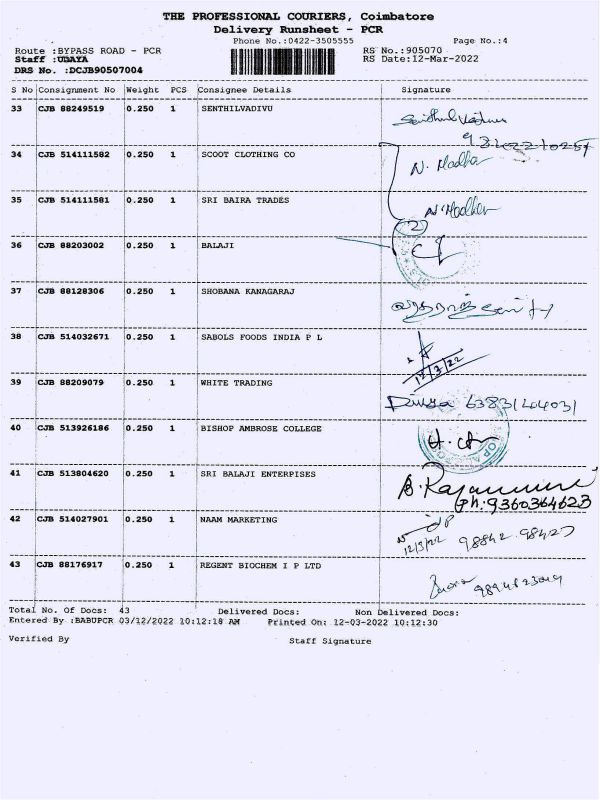 THE PROFESSIONAL COURIERS, Coimbatore
Delivery Runsheet - PCR
Phone No.:0422-3505555 Page No.:4
Route :BYPASS ROAD - PCR RS No.:905070
Staff :UDAYA RS Date:12-Mar-2022
DRS No. :DCJB90507004
S No Consignment No Weight PCS Consignee Details Signature
33 CJB 88249519 0.250 1 SENTHILVADIVU
34 CJB 514111582 0.250 1 SCOOT CLOTHING CO N. Madhav
35 CJB 514111581 0.250 1 SRI BAIRA TRADES N. Madhav
(2)
36 CJB 88203002 0.250 1 BALAJI
37 CJB 88128306 0.250 1 SHOBANA KANAGARAJ
38 CJB 514032671 0.250 1 SABOLS FOODS INDIA P L
12/3/22
39 CJB 88209079 0.250 1 WHITE TRADING
40 CJB 513926186 0.250 1 BISHOP AMBROSE COLLEGE
41 CJB 513804620 0.250 1 SRI BALAJI ENTERPISES
Ph:9360364623
42 CJB 514027901 0.250 1 NAAM MARKETING
12/3/22 98842.98427
43 CJB 88176917 0.250 1 REGENT BIOCHEM I P LTD
Total No. Of Docs: 43 Delivered Docs: Non Delivered Docs:
Entered By :BABUPCR 03/12/2022 10:12:18 AM Printed On: 12-03-2022 10:12:30
Verified By Staff Signature